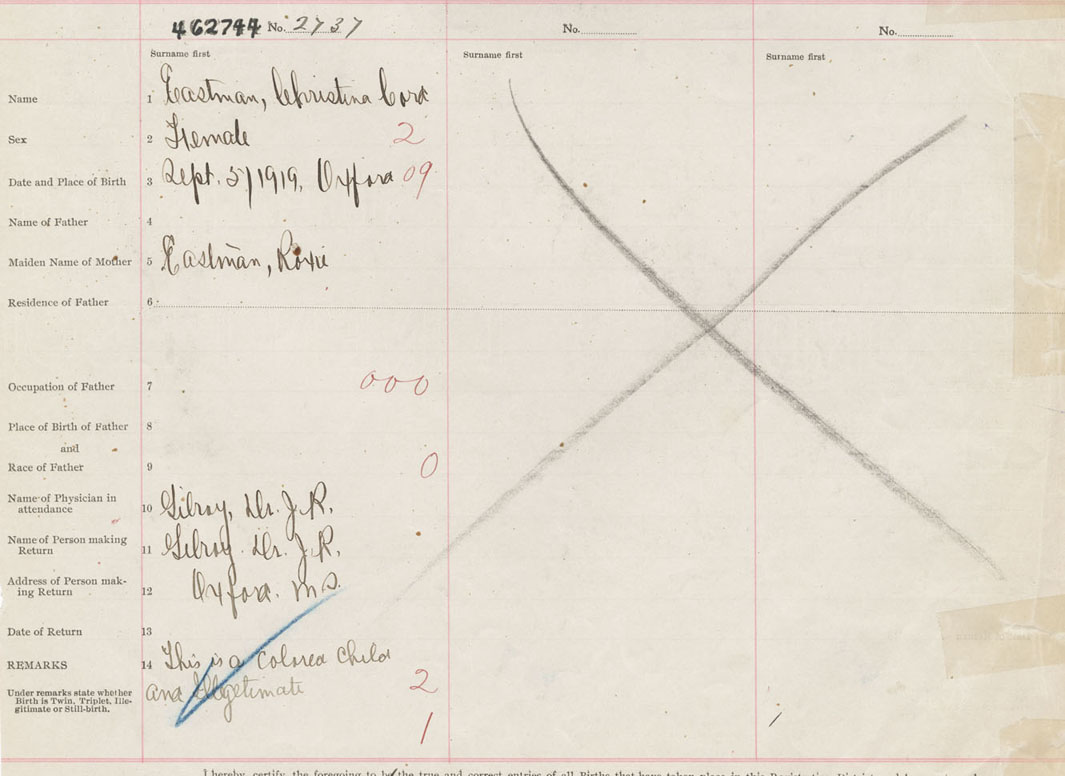 462744 No. 2737
No.
No.
Surname first
Surname first
Surname first
Name 1 Eastman, Christina Cora
Sex 2 Female 2
Date and Place of Birth 3 Sept. 5/1919, Oxford 09
Name of Father 4
Maiden Name of Mother 5 Eastman, Roxie
Residence of Father 6
Occupation of Father 7 000
Place of Birth of Father 8
and
Race of Father 9 0
Name of Physician in
attendance 10 Gilroy, Dr. J. R.
Name of Person making
Return 11 Gilroy. Dr. J. R.
Address of Person mak-
ing Return 12 Oxford. N.S.
Date of Return 13
REMARKS 14 This is a Colored Child
and Illegetimate 2
Under remarks state whether
Birth is Twin, Triplet, Ille-
gitimate or Still-birth.
1
I hereby certify the foregoing to be the true and correct entries of all Births that have taken place in this Registration District